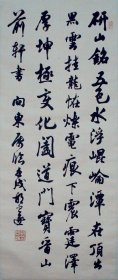 研山銘五色水浮崐崘潭在頂出
黑雲挂龍怪爍電痕下震霆澤
厚坤極變化闔道門寶晉山
前軒書 向東